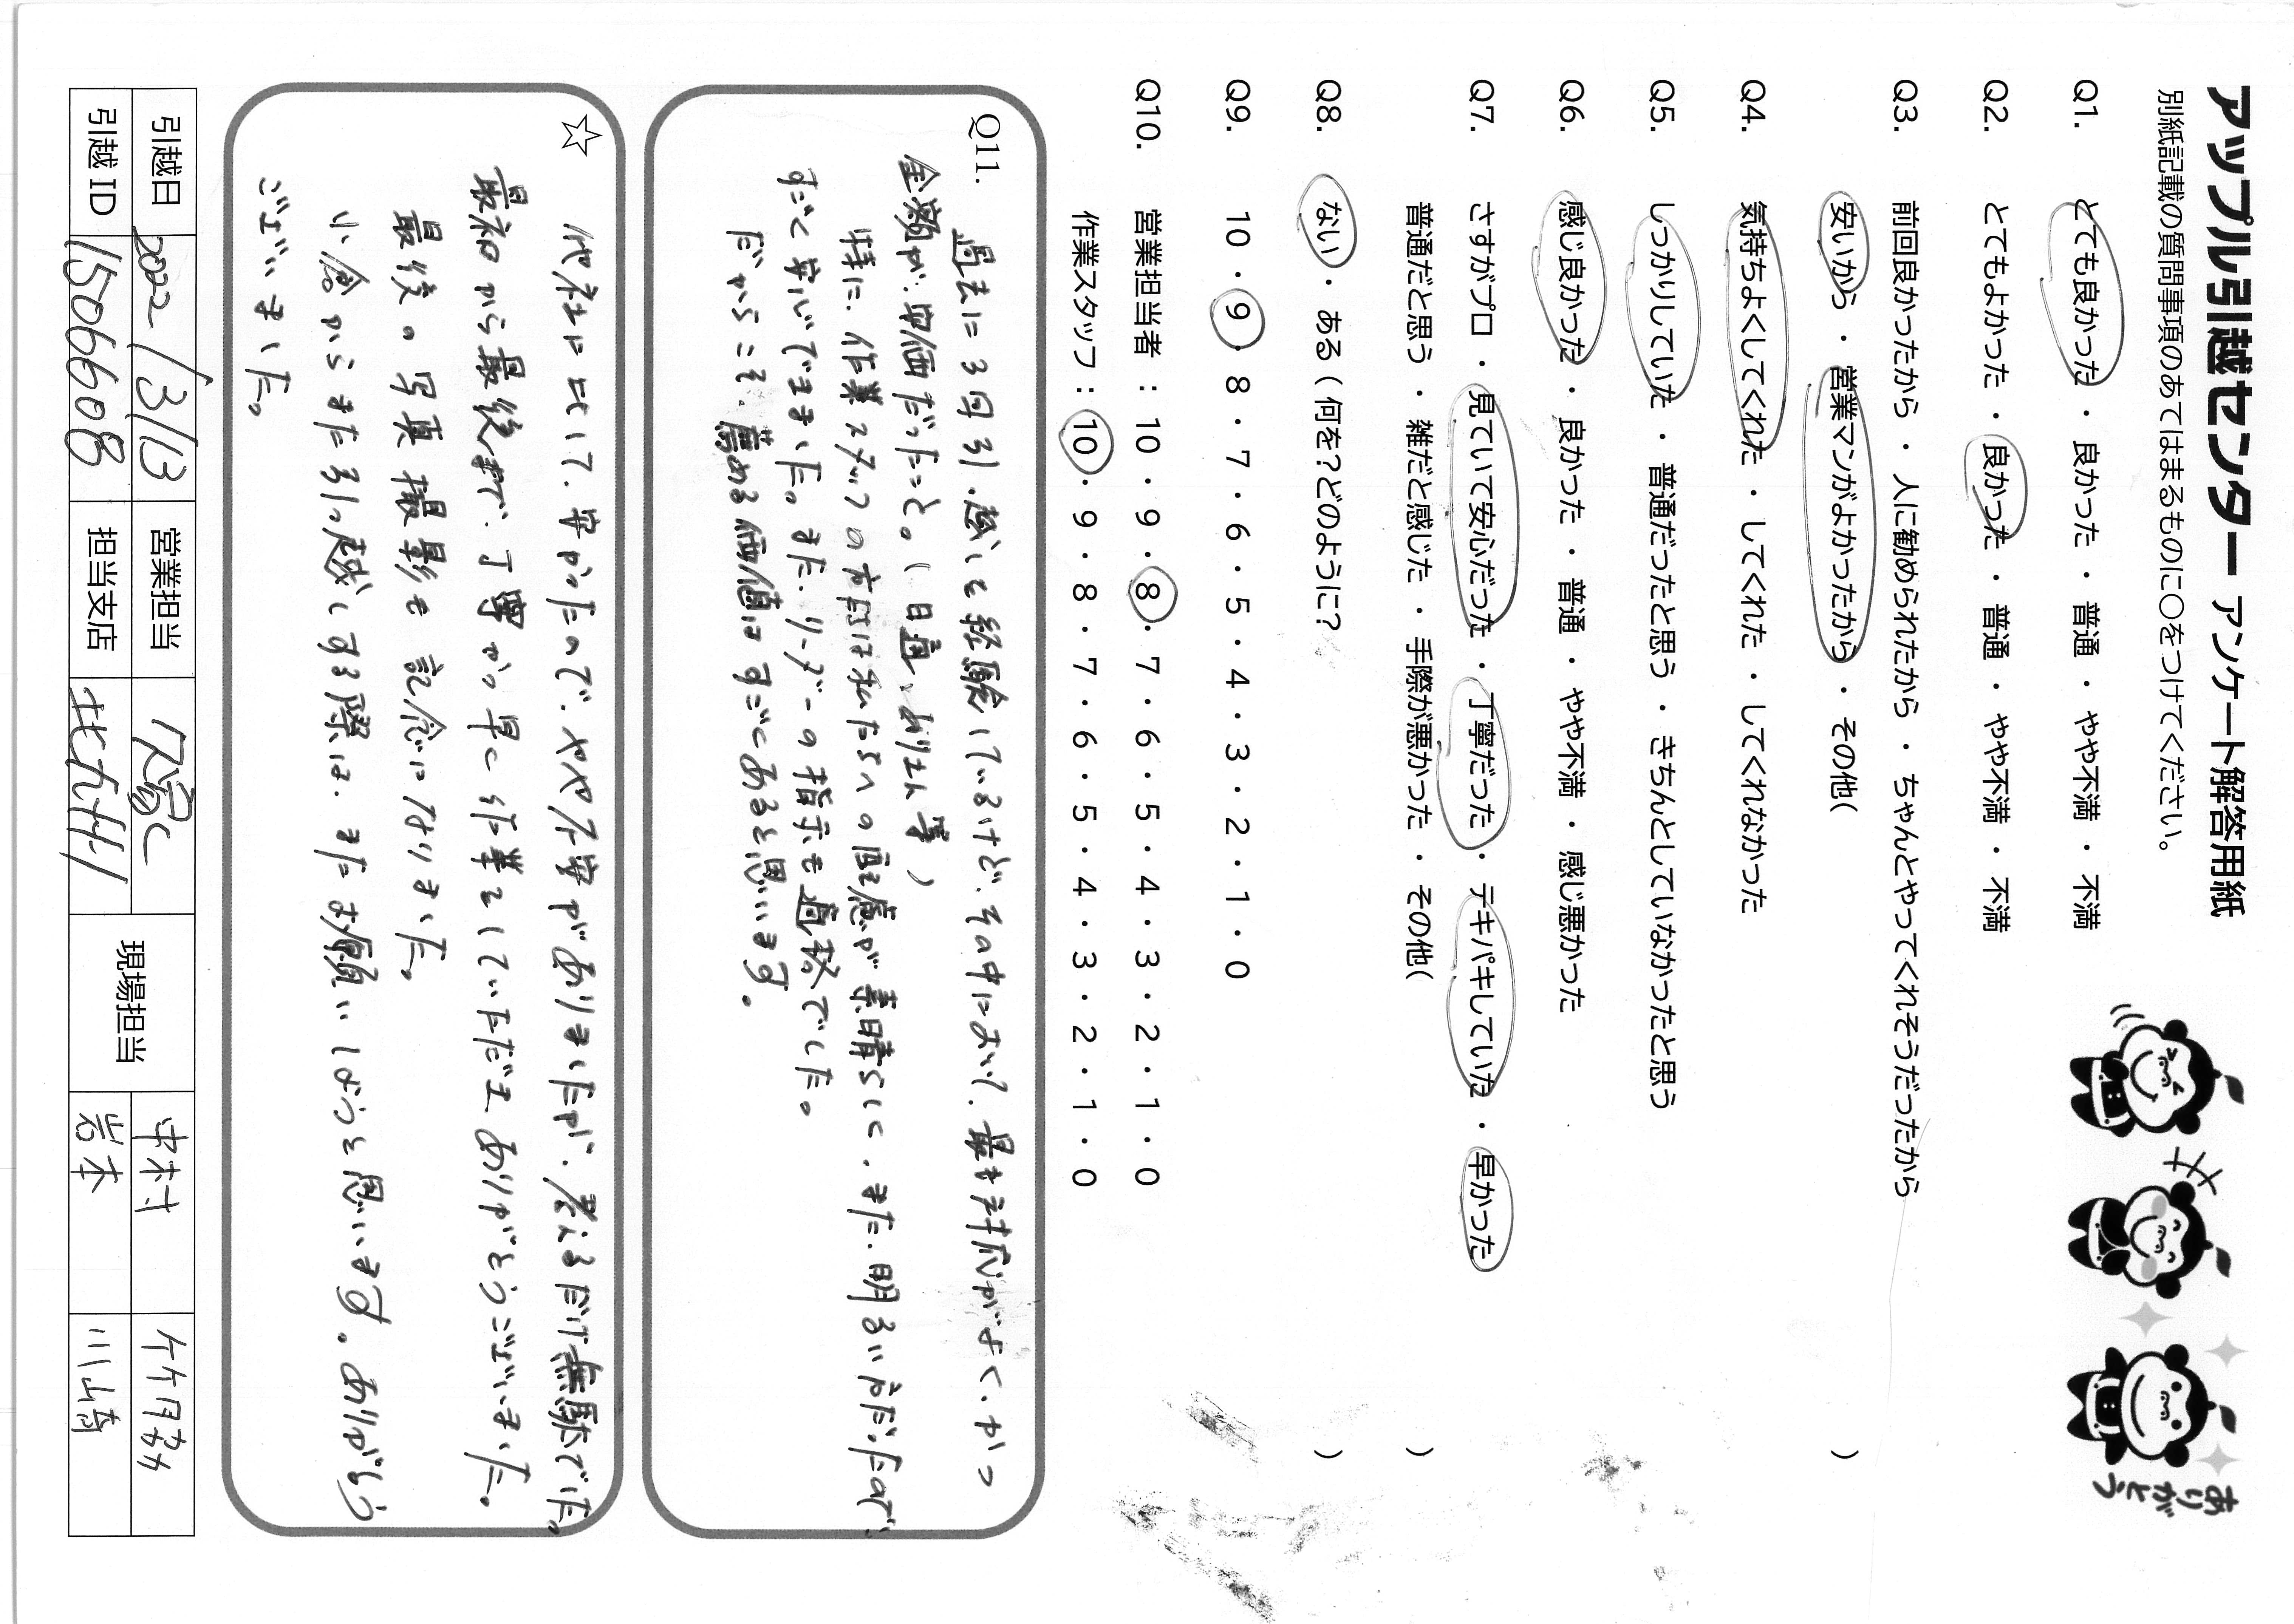 アップル引越センター アンケート解答用紙
別紙記載の質問事項のあてはまるものに○をつけてください。
Q1. とても良かった ・ 良かった ・ 普通 ・ やや不満 ・ 不満
Q2. とてもよかった ・ 良かった ・ 普通 ・ やや不満 ・ 不満
Q3. 前回良かったから ・ 人に勧められたから ・ ちゃんとやってくれそうだったから
安いから ・ 営業マンがよかったから ・ その他( )
Q4. 気持ちよくしてくれた ・ してくれた ・ してくれなかった
Q5. しっかりしていた ・ 普通だったと思う ・ きちんとしていなかったと思う
Q6. 感じ良かった ・ 良かった ・ 普通 ・ やや不満 ・ 感じ悪かった
Q7. さすがプロ ・ 見ていて安心だった ・ 丁寧だった ・ テキパキしていた ・ 早かった
普通だと思う ・ 雑だと感じた ・ 手際が悪かった ・ その他( )
Q8. ない ・ ある ( 何を?どのように? )
Q9. 10 ・ 9 ・ 8 ・ 7 ・ 6 ・ 5 ・ 4 ・ 3 ・ 2 ・ 1 ・ 0
Q10. 営業担当者 : 10 ・ 9 ・ 8 ・ 7 ・ 6 ・ 5 ・ 4 ・ 3 ・ 2 ・ 1 ・ 0
作業スタッフ : 10 ・ 9 ・ 8 ・ 7 ・ 6 ・ 5 ・ 4 ・ 3 ・ 2 ・ 1 ・ 0
Q11.
過去に3回引っ越しを経験しているけど、その中において、最も対応がよく、かつ
金額が安価だったこと。(日通、ありさん等)
特に、作業スタッフの方たちは私たちへの配慮が素晴らしく、また、明るい方だったので、
すごく安心できました。また、リーダーの指示も適格でした。
だからこそ、薦める価値はすごくあると思います。
☆
他社に比して、安かったので、やや不安がありましたが、考えるだけ無駄でした。
最初から最後まで、丁寧かつ早く作業をしていただき ありがとうございました。
最後の写真撮影も記念になりました。
小倉からまた引っ越しする際は、またお願いしようと思います。ありがとう
ございました。
引越日 2022/3/13 営業担当 現場担当 中村
引越ID 1506608 担当支店 北九州 岩本 川崎
ありがとう